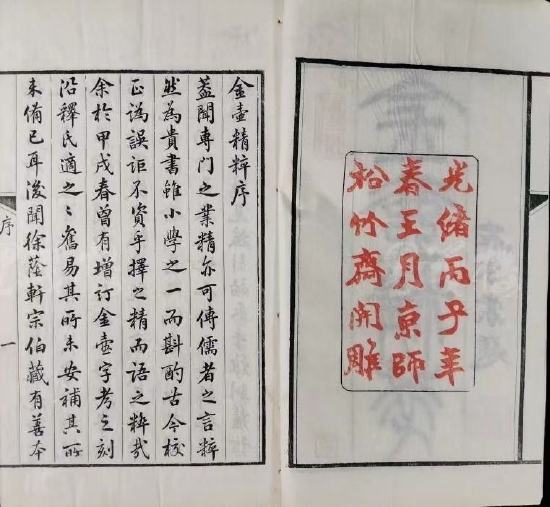 光緒丙子年
春王月京師
松竹齋開雕
金壺精粹序
蓋聞專門之業精亦可傳儒者之言粹
然為貴書雖小學之一而斟酌古今校
正譌誤詎不資乎擇之精而語之粹哉
余於甲戌春曾有增訂金壺字考之刻
沿釋氏適之〻舊易其所未安補其所
未備已耳後聞徐蔭軒宗伯藏有善本
序 一